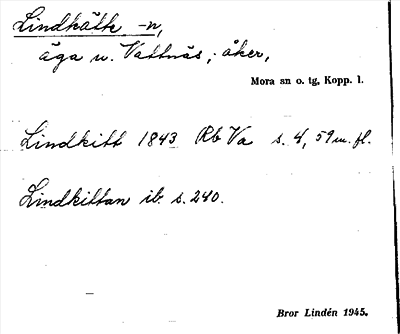 Lindkätt -n,
äga u. Vattnäs; åker,
Mora sn o. tg, Kopp. l.
Lindkitt 1843 Rb Va s. 4, 59 m. fl.
Lindkittan ib. s. 240.
Bror Lindén 1945.